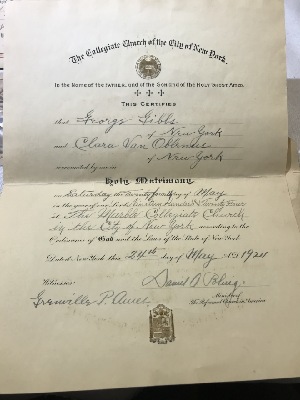 The Collegiate Church of the City of New York.
In the Name of the FATHER, and of the SON and of the HOLY GHOST, AMEN.
THIS CERTIFIES
that George Gibbs
of New York
and Clara Van
of New York
were united by me in
Holy Matrimony
on Saturday the Twenty fourth day of May
in the year of our Lord Nineteen Hundred & Twenty Four
at The Marble Collegiate Church
in the City of New York according to the
Ordinance of God and the Laws of the State of New York
Dated, New York this 24th day of May A.D. 1924
Witnesses: Daniel A. Poling
Grenville P. Minister of
The Reformed Church in America